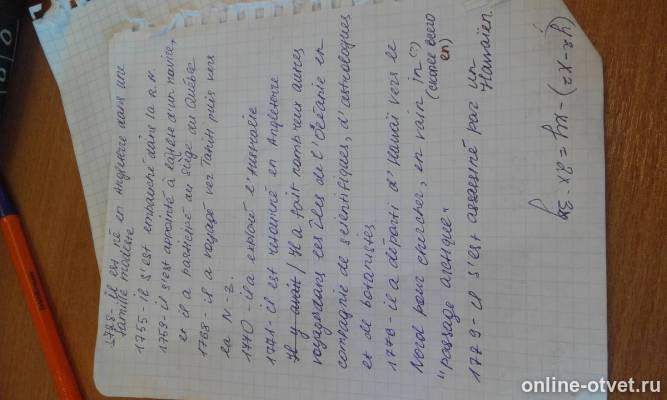 1728 - il est né en Angleterre dans une
famille modeste
1755 - il s'est embauché dans la R.N.
1759 - il s'est appointé à la tête d'un navire,
et il a participé au siège du Québec
1768 - il a voyagé vez Tahiti puis vers
la N-Z.
1770 - il a exploré l'Australie
1771 - il est retourné en Angleterre
Il y avait / Il a fait nombreux autres
voyages dans les îles de l'Océanie en
compagnie de scientifiques, d'astrologues
et de botanistes
1776 - il a départi d'Hawaï vers le
Nord pour chercher, en vain in
(скорее всего en)
"passage arctique"
1779 - il s'est assassiné par un
Hawaïen.
online-otvet.ru